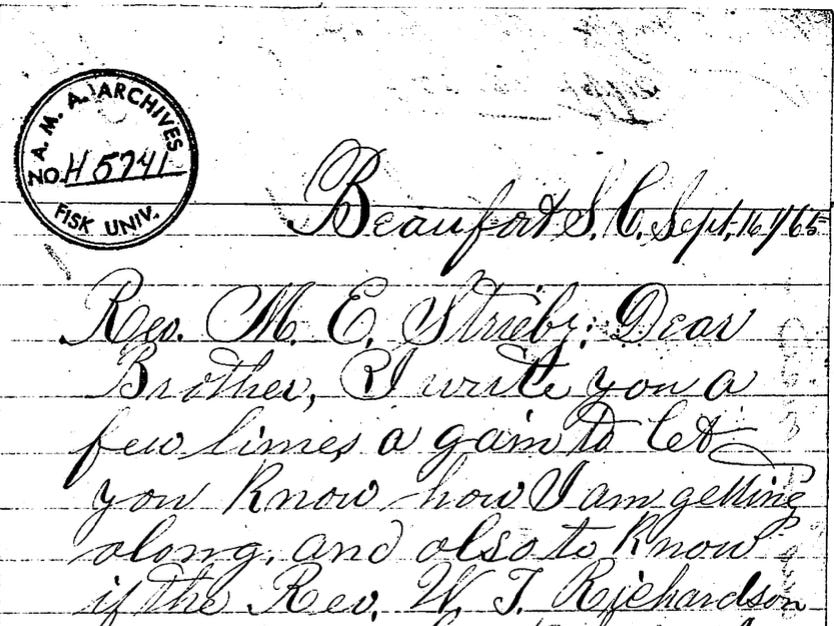 A. M. A. ARCHIVES
NO. H 5741
FISK UNIV.
Beaufort S. C. Sept. 16th/65
Rev. M. E. Strieby: Dear
Brother, I write you a
few limes a gain to let
you know how I am getting
along, and also to know
if the Rev. W. T. Richardson